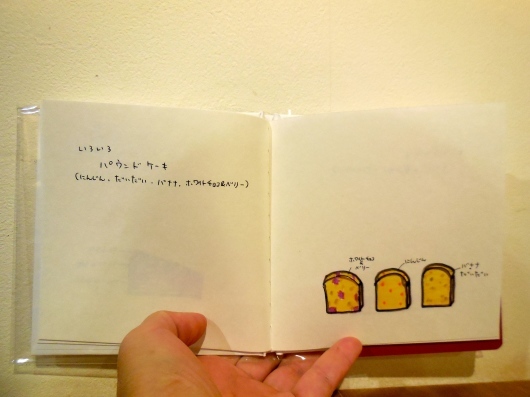 いろいろ
パウンドケーキ
(にんじん、だいだい、バナナ、ホワイトチョコ&ベリー)
ホワイトチョコ
&
ベリー
にんじん
バナナ
だいだい